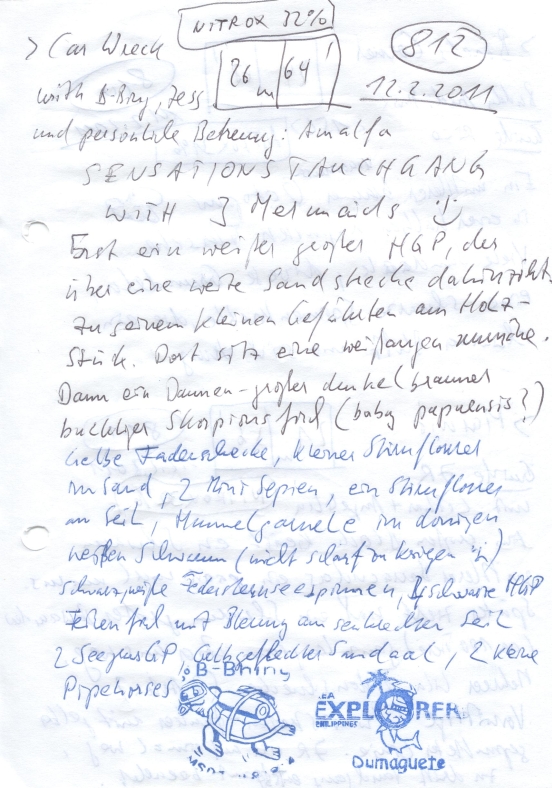 NITROX 32%
> Car Wreck
26 m 64'
812
with B-Bing, Jess
12.2.2011
und persönliche Betreuung: Amalfa
SENSATIONSTAUCHGANG
WITH 3 Mermaids
Erst ein weißer großer HGP, der
über eine weite Sandstrecke dahinzieht
zu seinem kleinen Gefährten am Holz-
stück. Dort sitzt eine weißaugen muräne.
Dann ein Daumen-großer dunkelbrauner
buckliger Skorpionsfisch (baby papuensis?)
Gelbe Fadenschnecke, kleiner Stirnflosser
im Sand, 2 Mini Sepien, ein Stirnflosser
an Seil, Hummelgarnele im dornigen
weißen Schwamm (nicht scharf zu kriegen)
schwarzweiße Federsternseespinnen, 2 schwarze HGP
Fetzenfisch mit am senkrechten Seil
2 SeegrasGP, Gelbgefleckter Sandaal, 2 kleine
Pipehorses
B-Bhing
Mermaid
SEA
EXPLORER
PHILIPPINES
Dumaguete